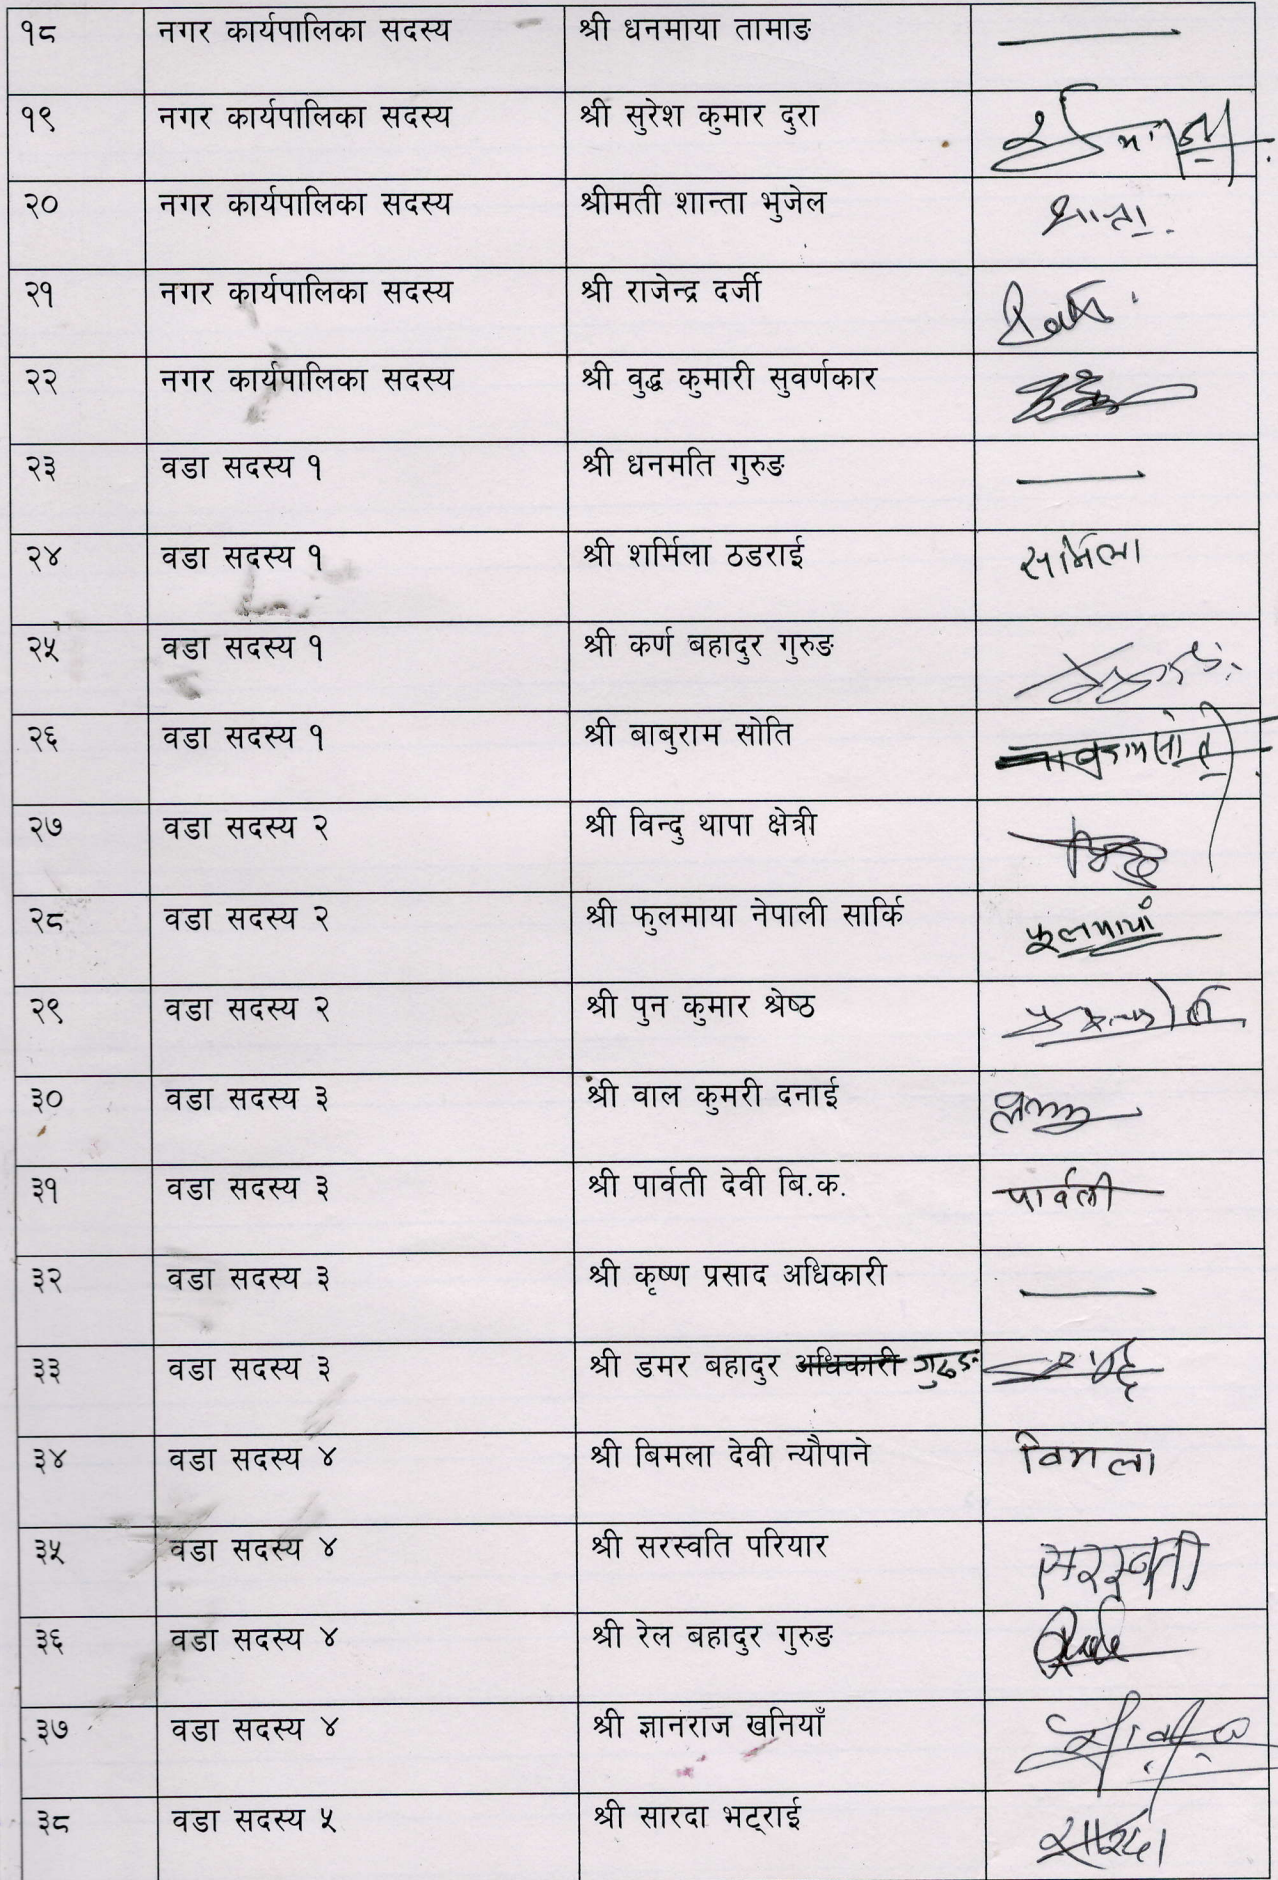 १८ नगर कार्यपालिका सदस्य श्री धनमाया तामाङ
१९ नगर कार्यपालिका सदस्य श्री सुरेश कुमार दुरा
२० नगर कार्यपालिका सदस्य श्रीमती शान्ता भुजेल शान्ता
२१ नगर कार्यपालिका सदस्य श्री राजेन्द्र दर्जी
२२ नगर कार्यपालिका सदस्य श्री वुद्ध कुमारी सुवर्णकार
२३ वडा सदस्य १ श्री धनमति गुरुङ
२४ वडा सदस्य १ श्री शर्मिला ठडराई सर्मिला
२५ वडा सदस्य १ श्री कर्ण बहादुर गुरुङ
२६ वडा सदस्य १ श्री बाबुराम सोति
२७ वडा सदस्य २ श्री विन्दु थापा क्षेत्री
२८ वडा सदस्य २ श्री फुलमाया नेपाली सार्कि फूलमायाँ
२९ वडा सदस्य २ श्री पुन कुमार श्रेष्ठ
३० वडा सदस्य ३ श्री वाल कुमरी दनाई
३१ वडा सदस्य ३ श्री पार्वती देवी बि.क. पार्वती
३२ वडा सदस्य ३ श्री कृष्ण प्रसाद अधिकारी
३३ वडा सदस्य ३ श्री डमर बहादुर अधिकारी गुरुङ
३४ वडा सदस्य ४ श्री बिमला देवी न्यौपाने विमला
३५ वडा सदस्य ४ श्री सरस्वति परियार सरस्वती
३६ वडा सदस्य ४ श्री रेल बहादुर गुरुङ
३७ वडा सदस्य ४ श्री ज्ञानराज खनियाँ
३८ वडा सदस्य ५ श्री सारदा भट्राई सारदा